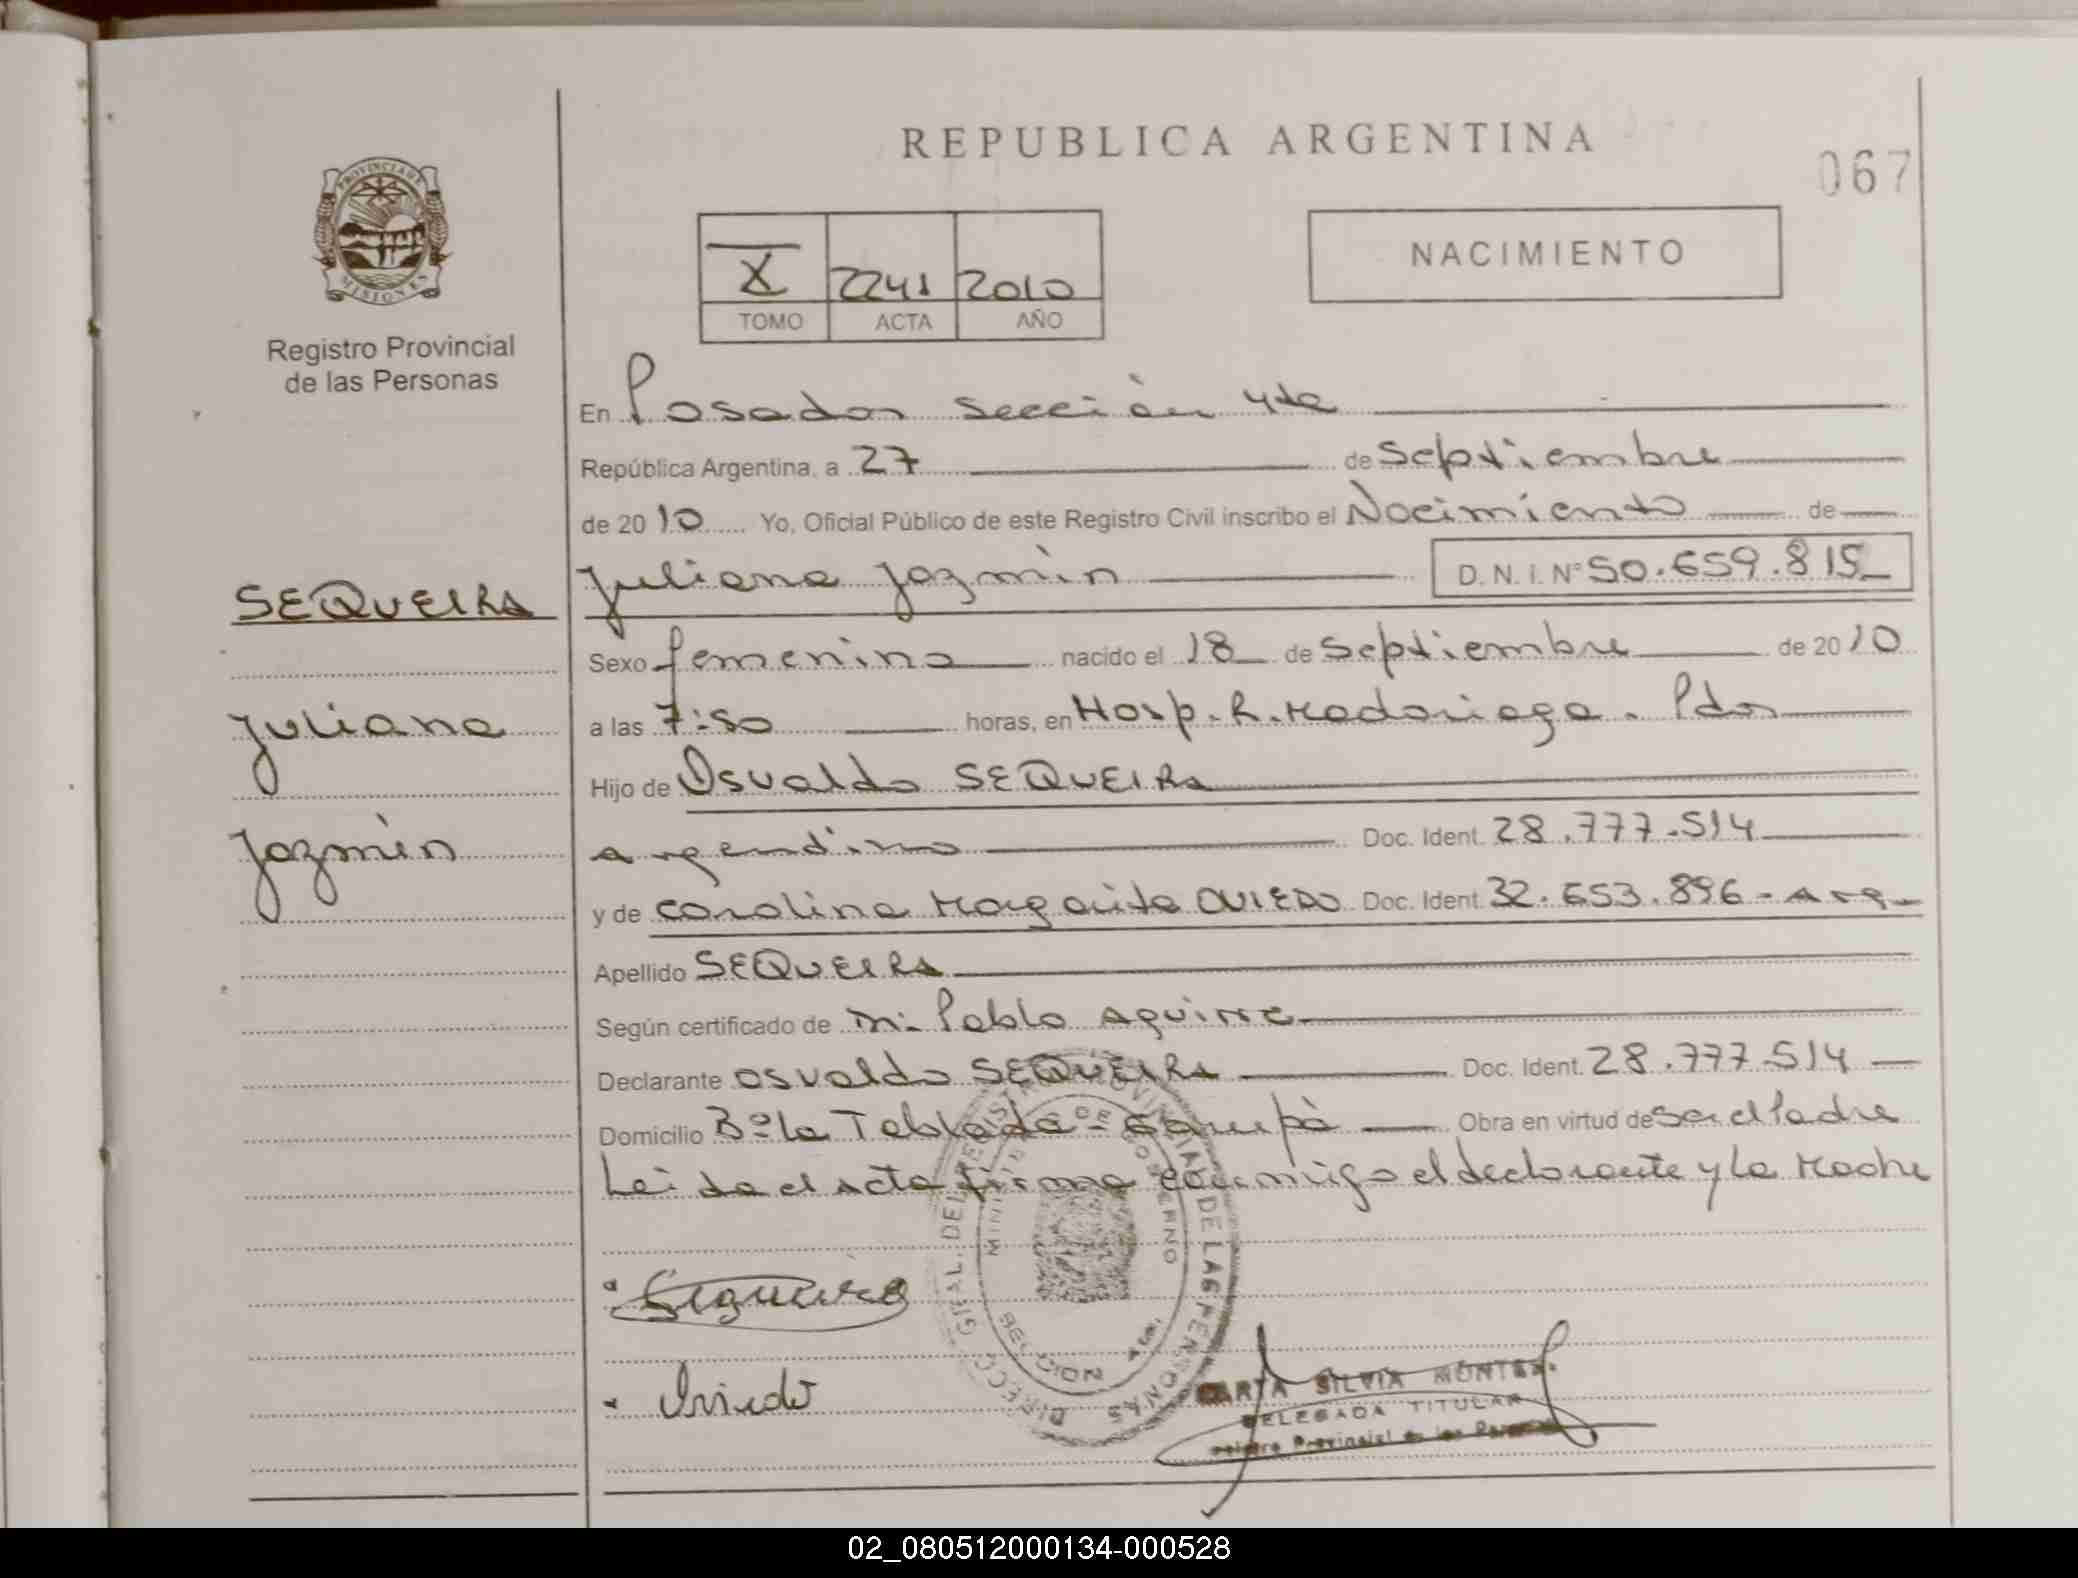 REPUBLICA ARGENTINA
067
PROVINCIA DE
MISIONES
Registro Provincial
de las Personas
X 2241 2010
TOMO ACTA AÑO
NACIMIENTO
En Posadas sección 4ta
República Argentina, a 27 de septiembre
de 2010 Yo, Oficial Público de este Registro Civil inscribo el Nacimiento de
SEQUEIRA
Juliana
Jazmín
Juliana Jazmín D.N.I. Nº 50.659.815
Sexo femenino nacido el 18 de septiembre de 2010
a las 7:50 horas, en Hosp. R. Madariaga. Pdas
Hijo de Osvaldo SEQUEIRA
argentino Doc. Ident. 28.777.514
y de Carolina Margarita OVIEDO Doc. Ident. 32.653.896 - Arg.
Apellido SEQUEIRA
Según certificado de Pablo Aguirre
Declarante Osvaldo SEQUEIRA Doc. Ident. 28.777.514
Domicilio Bº la Tablada - Garupá Obra en virtud de ser el Padre
Leida el acta firma conmigo el declarante y la Madre
DIRECC. GRAL. DEL REGISTRO PROVINCIAL DE LAS PERSONAS
MINIST. DE GOBIERNO
SECCION 4ta.
Sequeira
Oviedo
SILVIA
DELEGADA TITULAR
Provincial de las
02_080512000134-000528